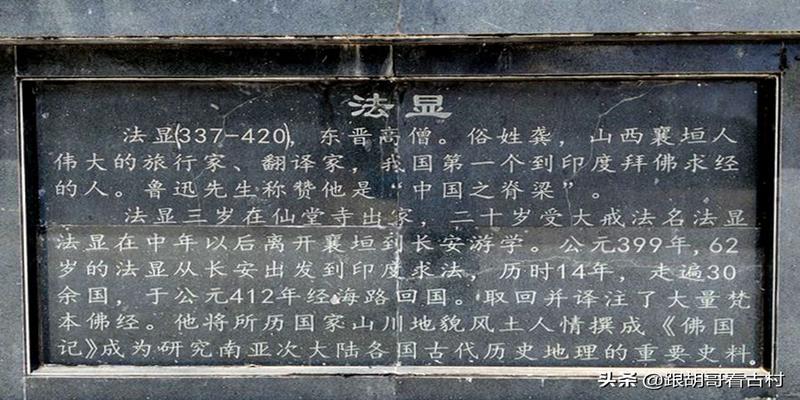 法显
法显(337-420)，东晋高僧。俗姓龚，山西襄垣人
伟大的旅行家、翻译家，我国第一个到印度拜佛求经
的人。鲁迅先生称赞他是“中国之脊梁”。
法显三岁在仙堂寺出家，二十岁受大戒法名法显
法显在中年以后离开襄垣到长安游学。公元399年,62
岁的法显从长安出发到印度求法，历时14年，走遍30
余国，于公元412年经海路回国。取回并译注了大量梵
本佛经。他将所历国家山川地貌风土人情撰成《佛国
记》成为研究南亚次大陆各国古代历史地理的重要史料.
头条 @跟胡哥看古村